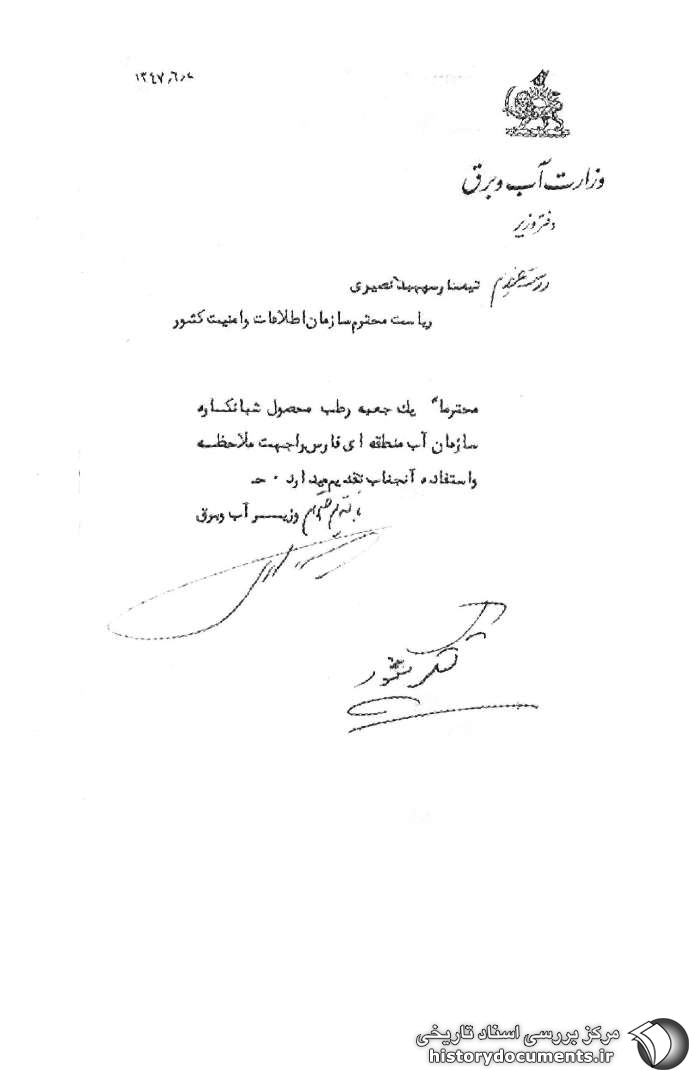 ۱۳٤۷٫٦٫۷
وزارت آب و برق
دفتر وزیر
دوست عزیزم تیمسار سپهبد نصیری
ریاست محترم سازمان اطلاعات و امنیت کشور
محترما" یك جعبه رطب محصول شبانکاره
سازمان آب منطقه ای فارس راجهت ملاحظه
واستفاده آنجناب تقدیم میدارد . حـ
وزیـــر آب وبرق
تشکر شود
مرکز بررسی اسناد تاریخی
historydocuments.ir